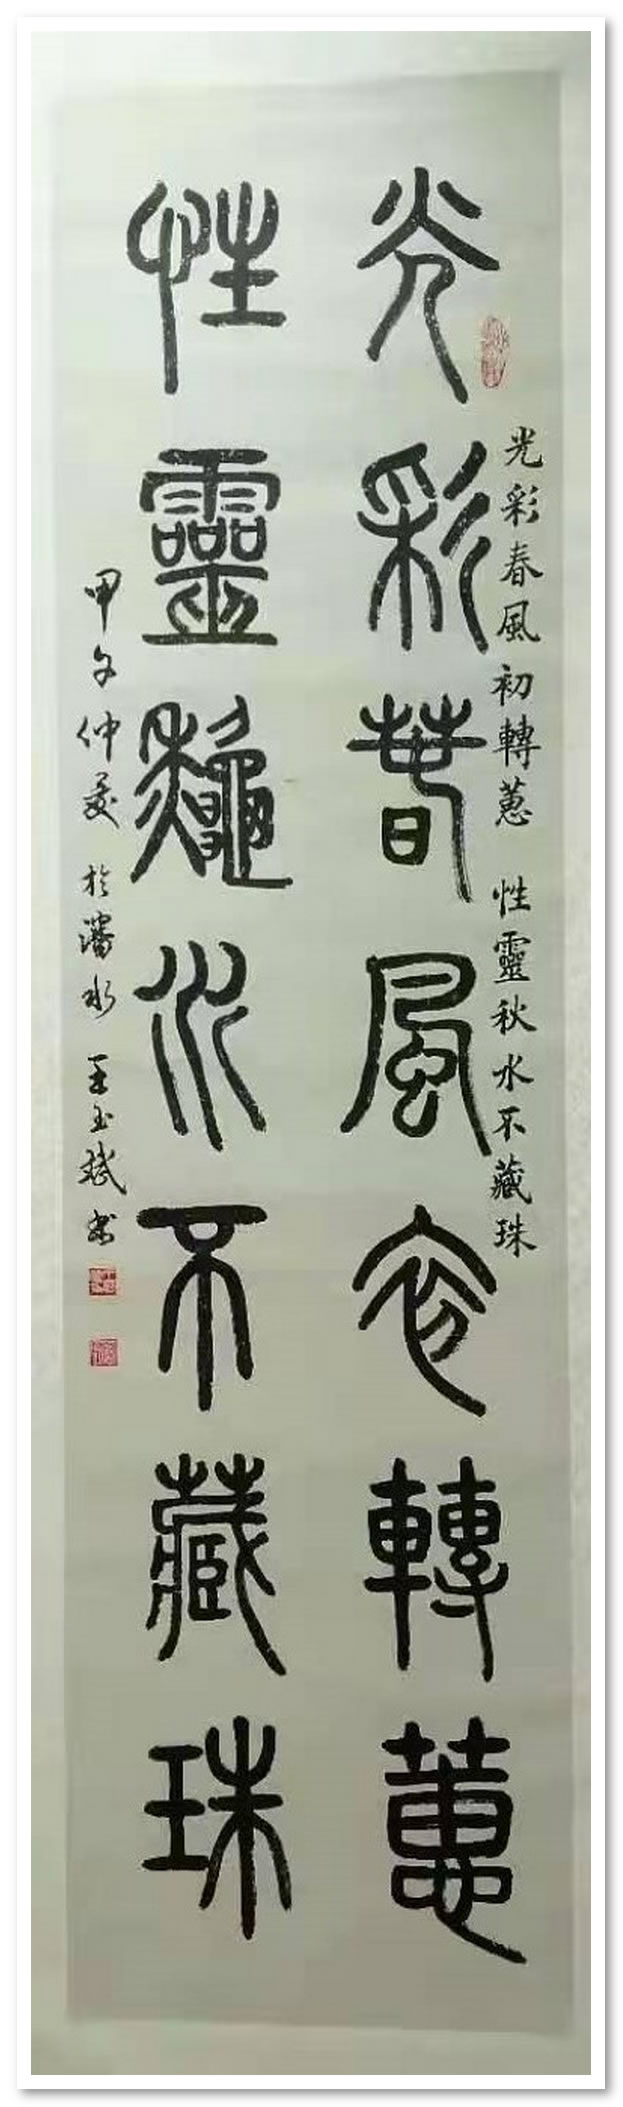 光彩春風初轉蕙 性靈秋水不藏珠
光彩春風初轉蕙
性靈龝水不藏珠
甲午仲夏於瀋水王玉斌書